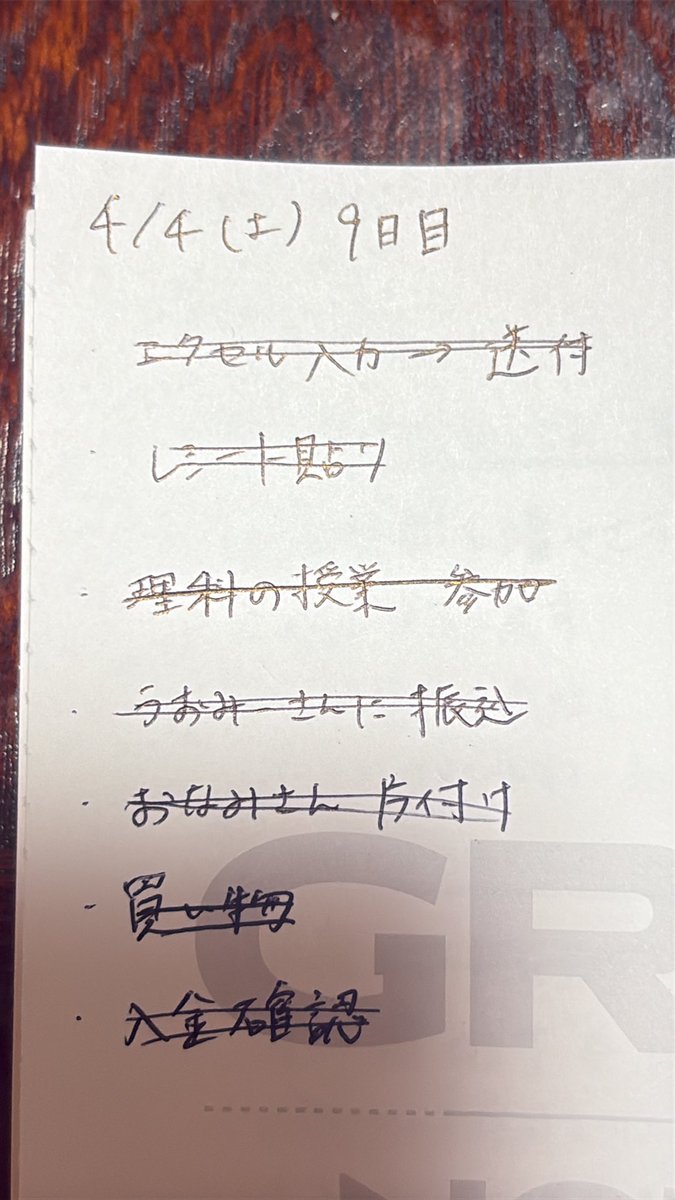 4/4(土) 9日目
エクセル入力→送付
レシート貼り
・理科の授業 参加
・うおみーさんに振込
・おなみさん 片付け
・買い物
・入金確認
GR